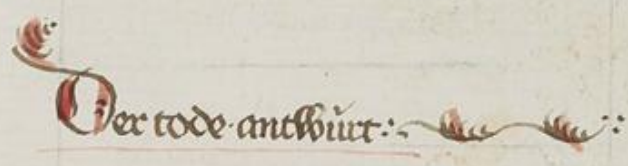 Der tode · antwürt :~